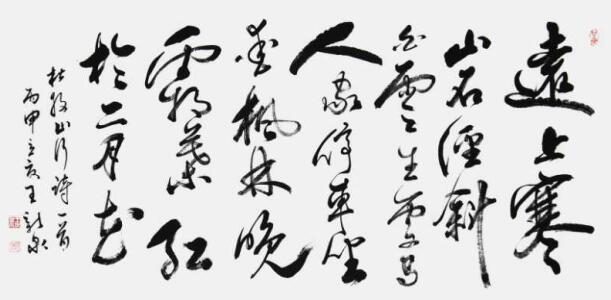 遠上寒
山石徑斜
白雲生處有
人家停車坐
愛楓林晚
霜葉紅
於二月花
杜牧山行詩一首
丙申立夏王